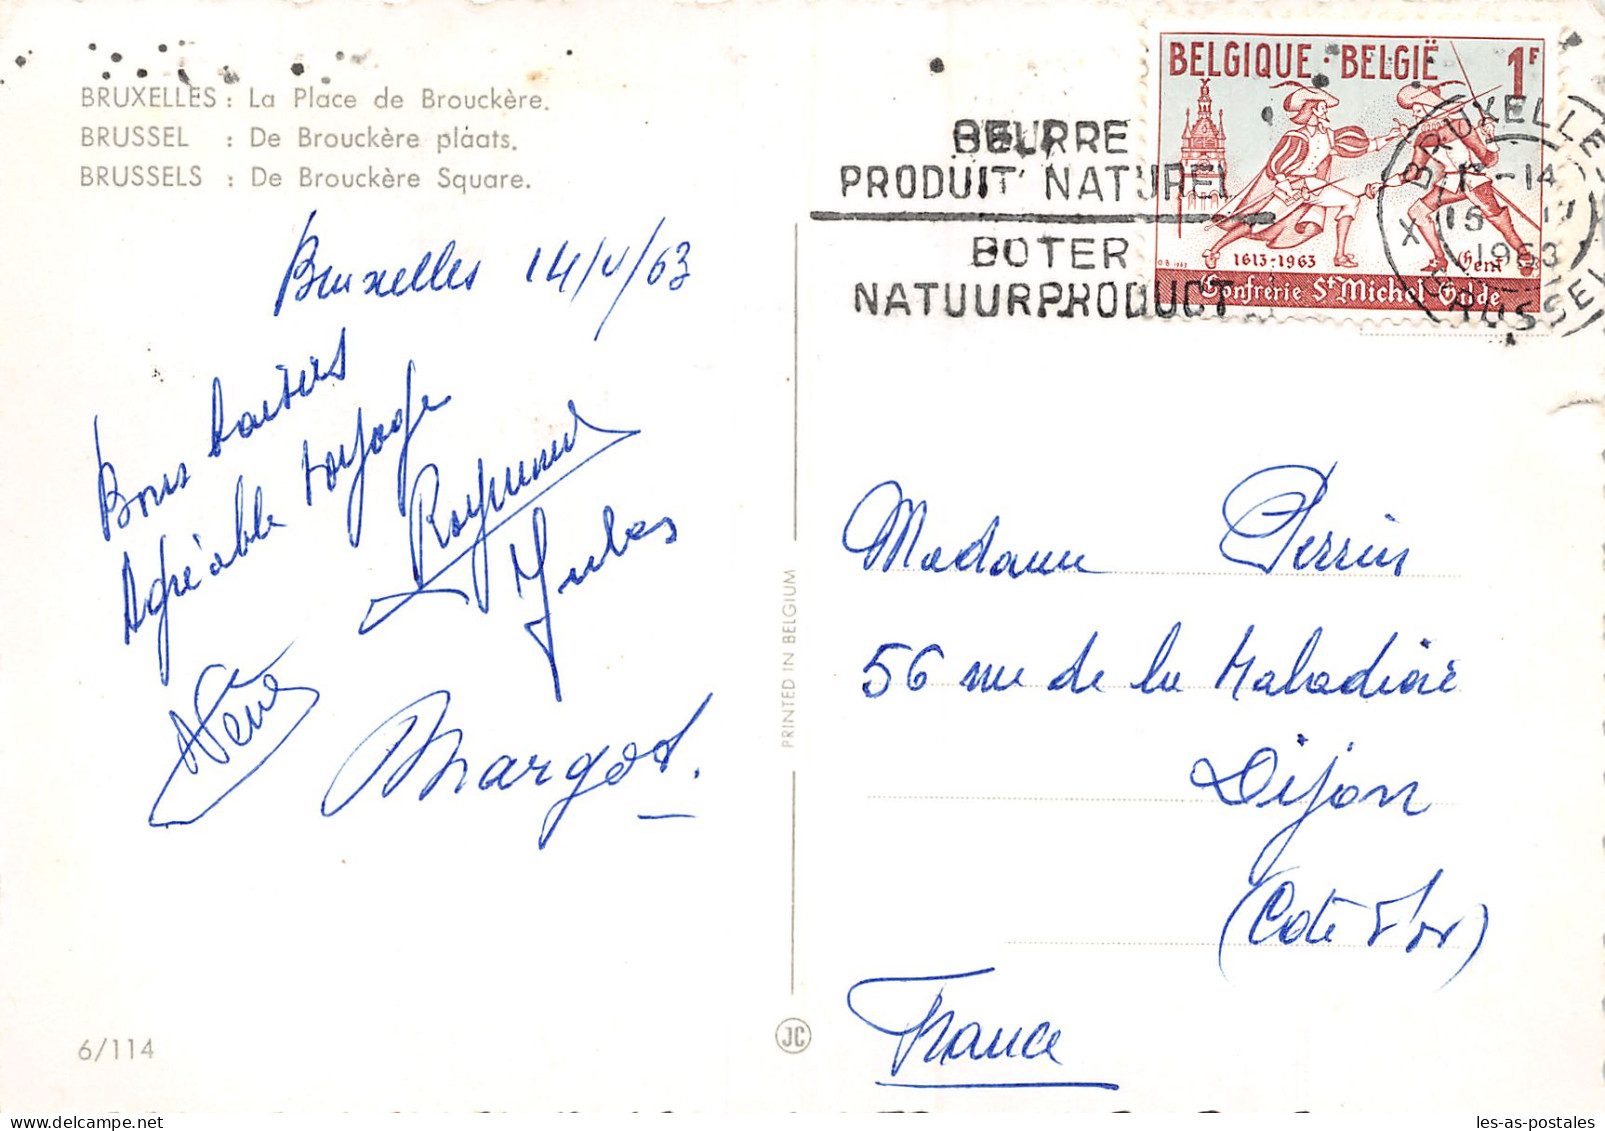 BRUXELLES : La Place de Brouckère.
BRUSSEL : De Brouckère pláats.
BRUSSELS : De Brouckère Square.
Bruxelles 14/4/63
Bons baisers
Agréable voyage
Raymond
Margot.
6/114
PRINTED IN BELGIUM
JC
BEURRE
PRODUIT NATUREL
BOTER
NATUURPRODUCT
BELGIQUE · BELGIË 1F
1613-1963 Gent
Confrerie St Michel Gilde
BRUXELLES X BRUSSEL
-14
15
1963
Madame Perrin
56 rue de la Maladière
Dijon
(Côte d'or)
France
les-as-postales